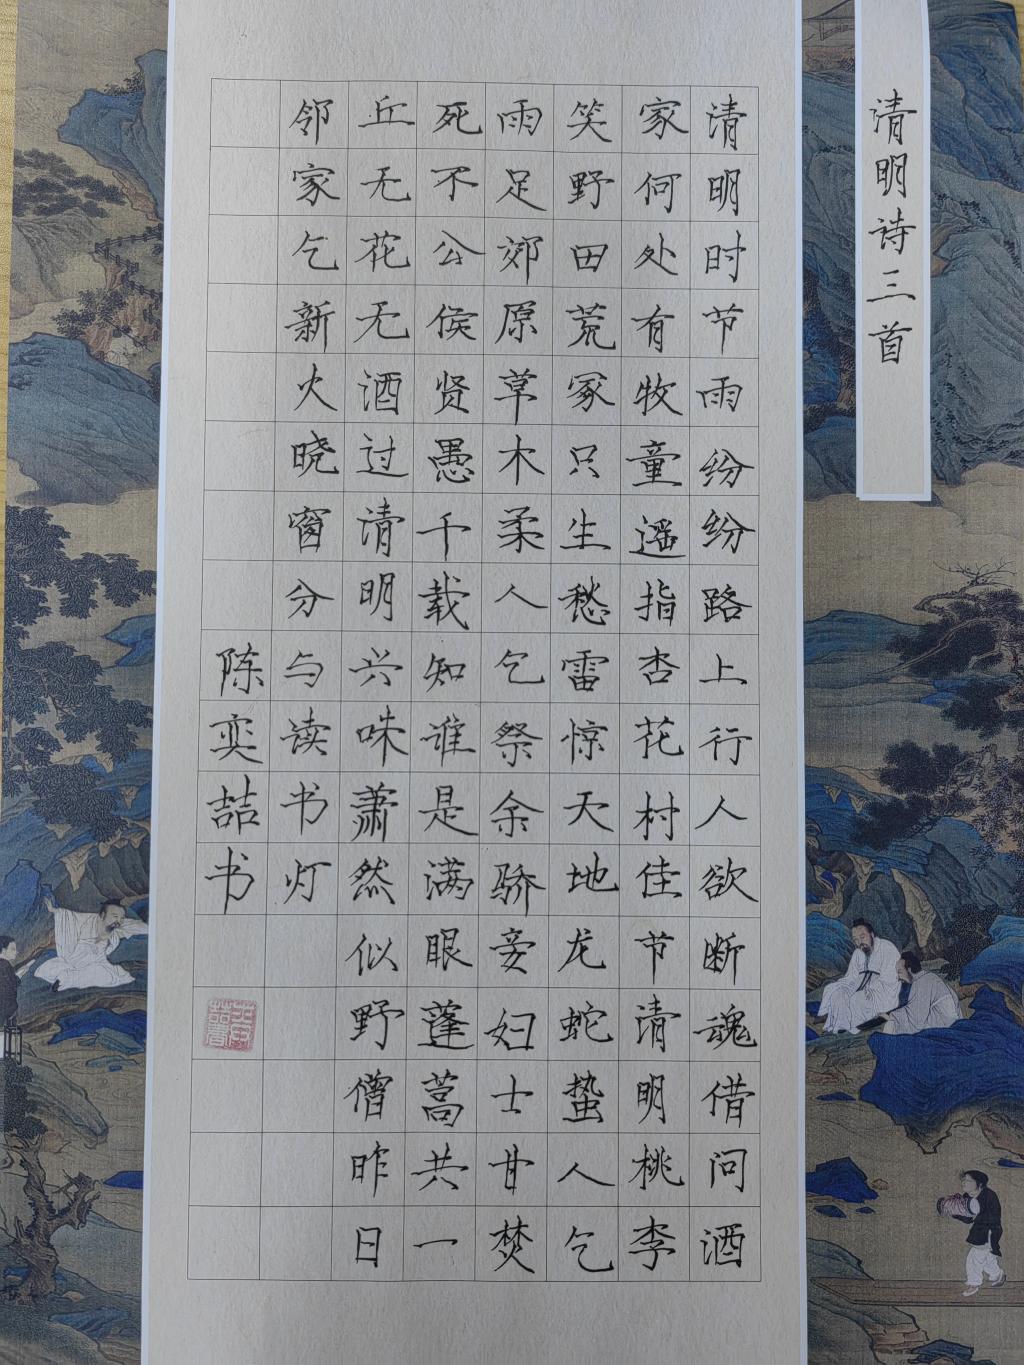 清明诗三首
清明时节雨纷纷路上行人欲断魂借问酒
家何处有牧童遥指杏花村佳节清明桃李
笑野田荒冢只生愁雷惊天地龙蛇蛰人乞
雨足郊原草木柔人乞祭余骄妾妇士甘焚
死不公侯贤愚千载知谁是满眼蓬蒿共一
丘无花无酒过清明兴味萧然似野僧昨日
邻家乞新火晓窗分与读书灯
陈奕喆书